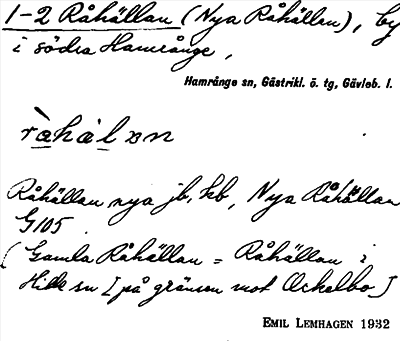 1-2 Råhällan (Nya Råhällan), by
i södra Hamrånge,
Hamrånge sn, Gästrikl. ö. tg, Gävleb. l.
Råhällan nya jb, kb, Nya Råhällan
G105.
(Gamla Råhällan = Råhällan i
Hille sn [på gränsen mot Ockelbo]
EMIL LEMHAGEN 1932